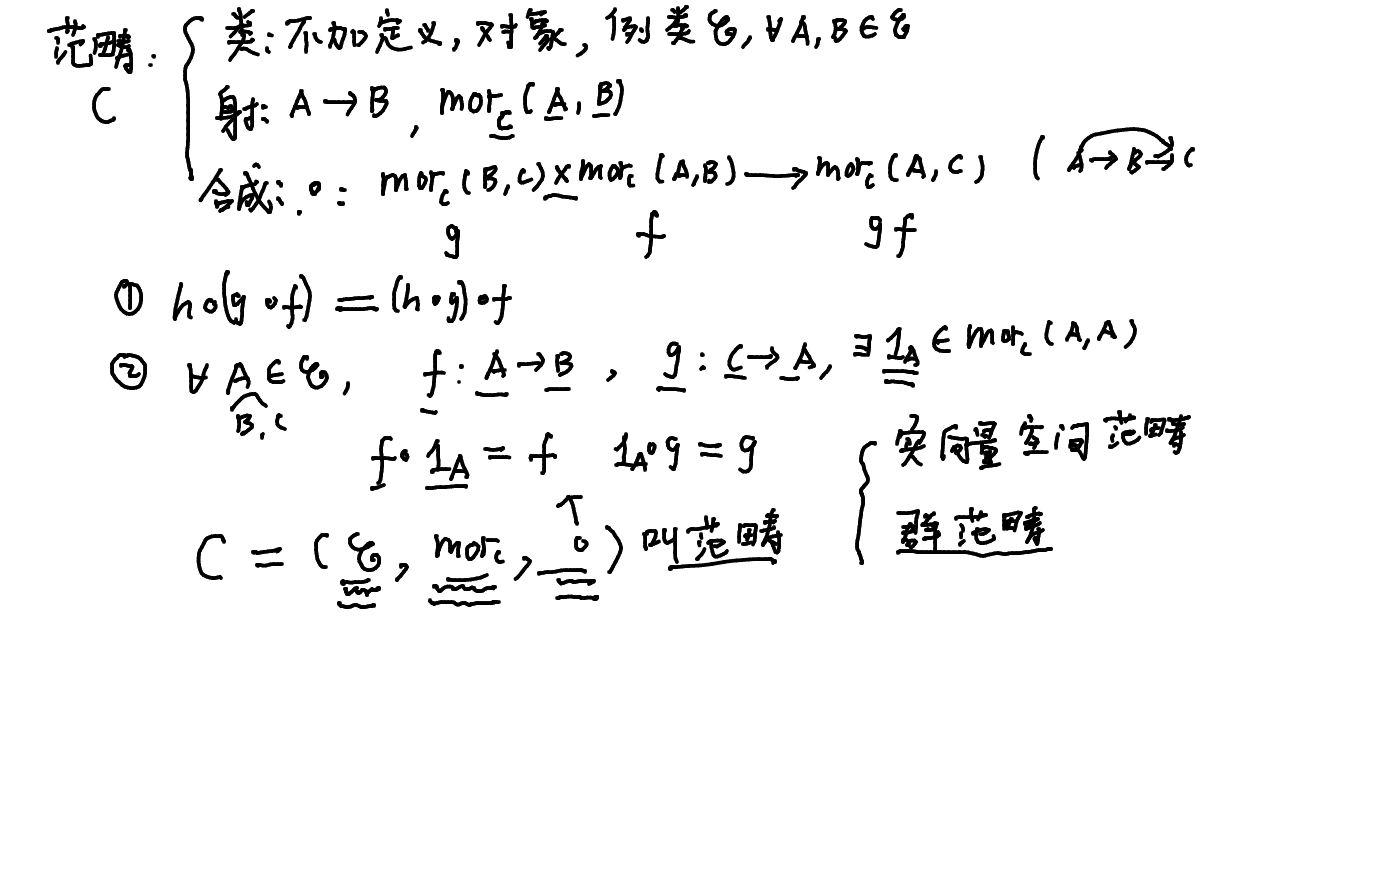 范畴: { 类: 不加定义, 对象, 例 类 𝒞, ∀ A, B ∈ 𝒞
C 射: A → B , mor_C (A, B)
合成: ∘: mor_C (B, C) × mor_C (A, B) → mor_C (A, C) ( A → B → C
g f gf
① h∘(g∘f) = (h∘g)∘f
② ∀ A ∈ 𝒞, f: A → B , g: C → A, ∃ 1_A ∈ mor_C (A, A)
B, C
f∘1_A = f 1_A∘g = g { 实向量空间范畴
C = (𝒞, mor_C, ∘) 叫范畴 群范畴